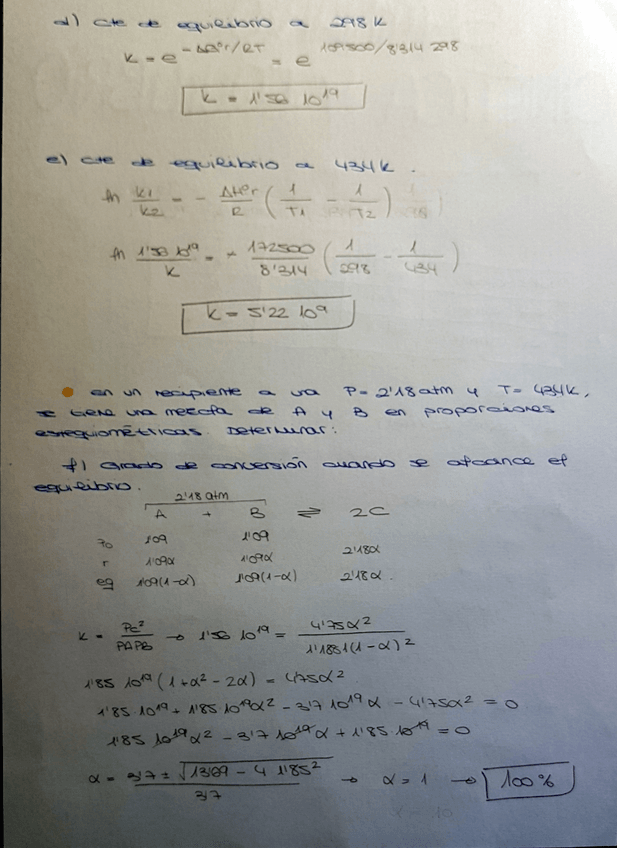 d) cte de equilibrio a 298 K
K = e^(-ΔG°r/RT) = e^(109500/8'314 298)
K = 1'56 10^19
e) cte de equilibrio a 434 K.
ln K1/K2 = - ΔH°r/R (1/T1 - 1/T2)
ln 1'56 10^19/K = - 172500/8'314 (1/298 - 1/434)
K = 5'22 10^9
en un recipiente a una P = 2'18 atm y T = 434 K,
se tiene una mezcla de A y B en proporciones
estequiométricas. Determinar:
f) Grado de conversión cuando se alcance el
equilibrio.
2'18 atm
A + B ⇌ 2C
n0 1'09 1'09
r 1'09α 1'09α 2'18α
eq 1'09(1-α) 1'09(1-α) 2'18α.
K = Pc²/PAPB → 1'56 10^19 = 4'75α²/1'1881(1-α)²
1'85 10^19 (1+α²-2α) = 4'75α²
1'85 · 10^19 + 1'85 10^19α² - 3'7 10^19α - 4'75α² = 0
1'85 10^19α² - 3'7 10^19α + 1'85 · 10^19 = 0
α = 3'7 ± √(13'69 - 4 1'85²)/3'7 → α = 1 → 100%